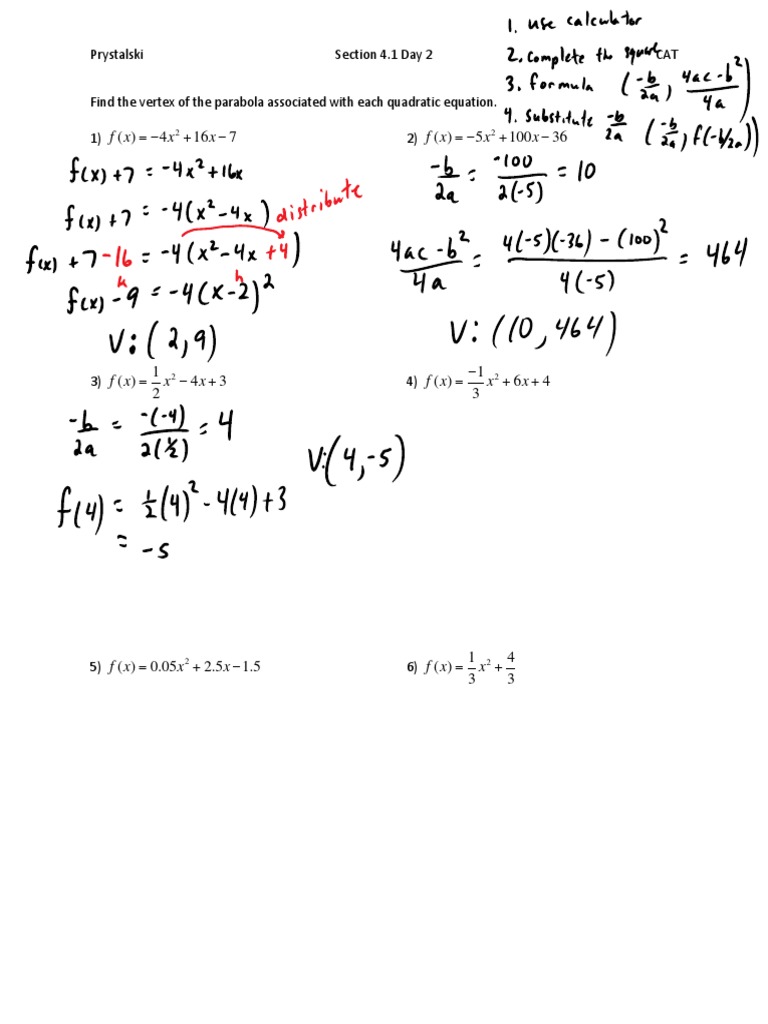 Prystalski Section 4.1 Day 2 CAT
1. use calculator
2. Complete the square
3. formula (-b/2a, 4ac-b²/4a)
4. Substitute -b/2a (-b/2a, f(-b/2a))
Find the vertex of the parabola associated with each quadratic equation.
1) f(x) = −4x² + 16x − 7
f(x) + 7 = -4x² + 16x
f(x) + 7 = -4(x² - 4x ) distribute
f(x) + 7 - 16 = -4(x² - 4x + 4)
k h
f(x) - 9 = -4(x - 2)²
V: (2, 9)
2) f(x) = −5x² + 100x − 36
-b/2a = -100/2(-5) = 10
4ac - b²/4a = 4(-5)(-36) - (100)²/4(-5) = 464
V: (10, 464)
3) f(x) = 1/2 x² − 4x + 3
-b/2a = -(-4)/2(½) = 4
f(4) = ½(4)² - 4(4) + 3
= -5
V: (4, -5)
4) f(x) = −1/3 x² + 6x + 4
5) f(x) = 0.05x² + 2.5x − 1.5
6) f(x) = 1/3 x² + 4/3